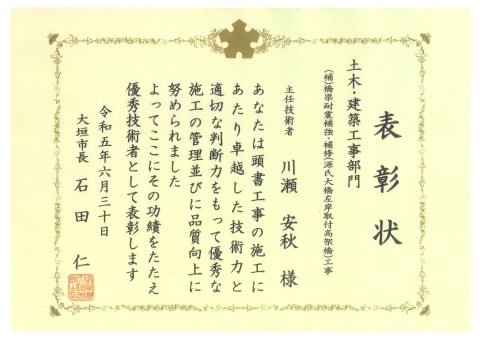 表彰状
土木・建築工事部門
(補)橋梁耐震補強・補修(源氏大橋左岸取付高架橋)工事
主任技術者
川瀬 安秋 様
あなたは頭書工事の施工に
あたり卓越した技術力と
適切な判断力をもって優秀な
施工の管理並びに品質向上に
努められました
よってここにその功績をたたえ
優秀技術者として表彰します
令和五年六月三十日
大垣市長 石田 仁